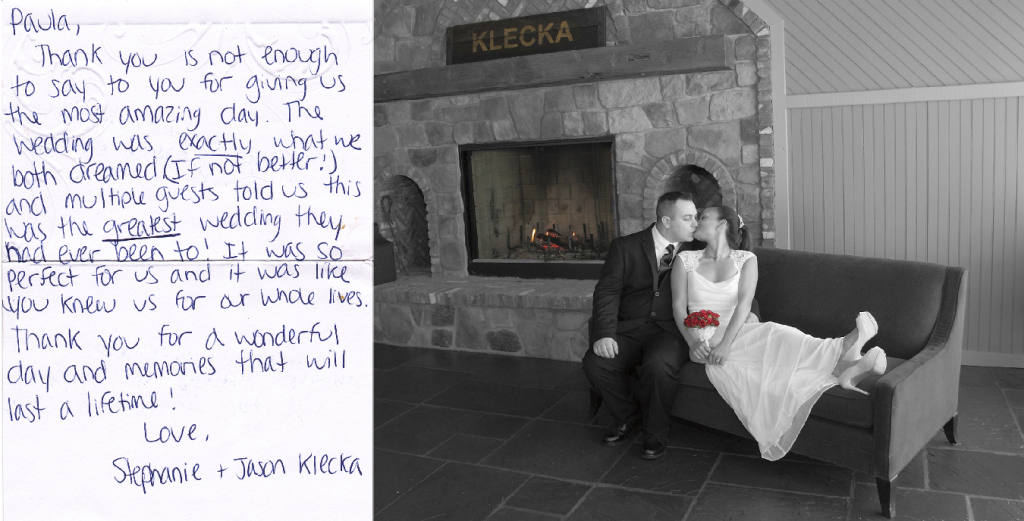 Paula,
Thank you is not enough
to say to you for giving us
the most amazing day. The
wedding was exactly what we
both dreamed (If not better!)
and multiple guests told us this
was the greatest wedding they
had ever been to! It was so
perfect for us and it was like
you knew us for our whole lives.
Thank you for a wonderful
day and memories that will
last a lifetime!
Love,
Stephanie + Jason Klecka
KLECKA